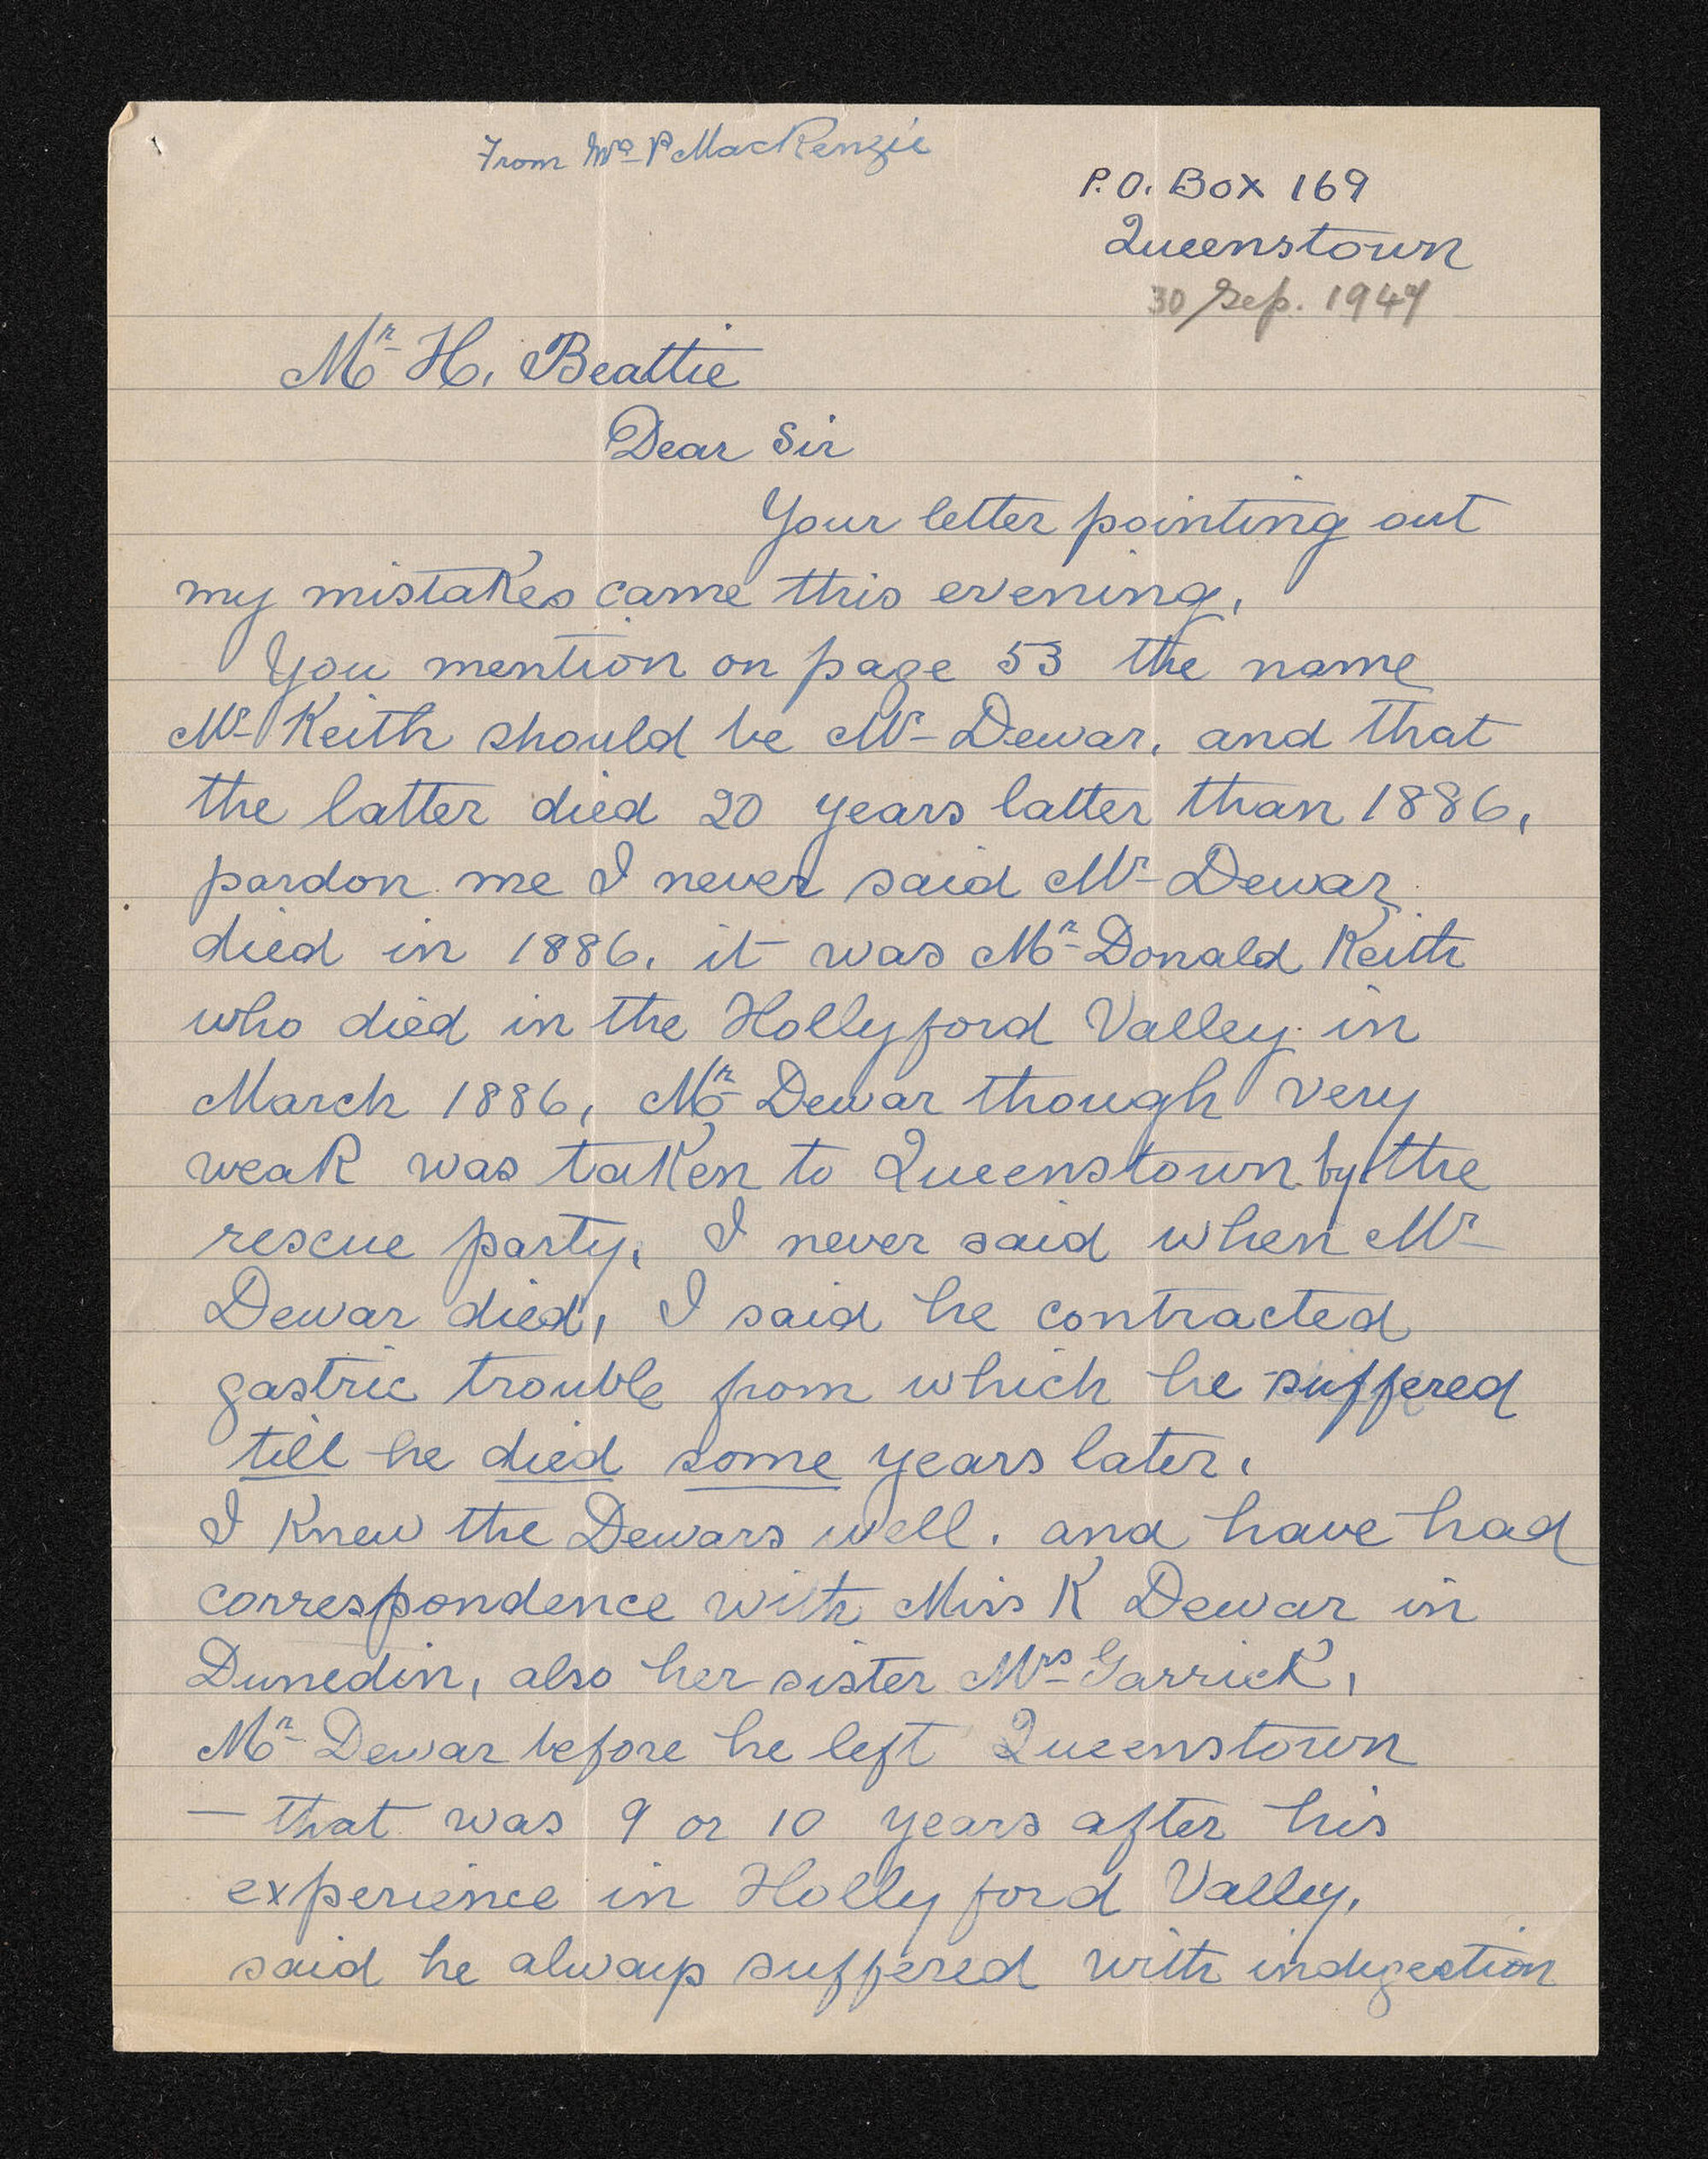 From Mrs P MacKenzie
P.O. Box 169
Queenstown
30 Sep. 1947
Mr H. Beattie
Dear Sir
Your letter pointing out
my mistakes came this evening,
You mention on page 53 the name
Mr Keith should be Mr Dewar, and that
the latter died 20 years latter than 1886,
pardon me I never said Mr Dewar
died in 1886, it was Mr Donald Keith
who died in the Hollyford Valley in
March 1886, Mr Dewar though very
weak was taken to Queenstown by the
rescue party, I never said when Mr
Dewar died, I said he contracted
gastric trouble from which he suffered
till he died some years later.
I knew the Dewars well. and have had
correspondence with Miss K Dewar in
Dunedin, also her sister Mrs Garrick,
Mr Dewar before he left Queenstown
— that was 9 or 10 years after his
experience in Hollyford Valley,
said he always suffered with indigestion